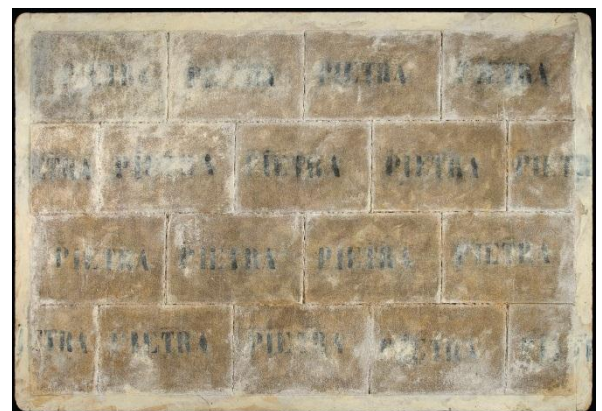 PIETRA PIETRA PIETRA PIETRA
ETRA PIETRA PIETRA PIETRA PIETRA
PIETRA PIETRA PIETRA PIETRA
ETRA PIETRA PIETRA PIETRA